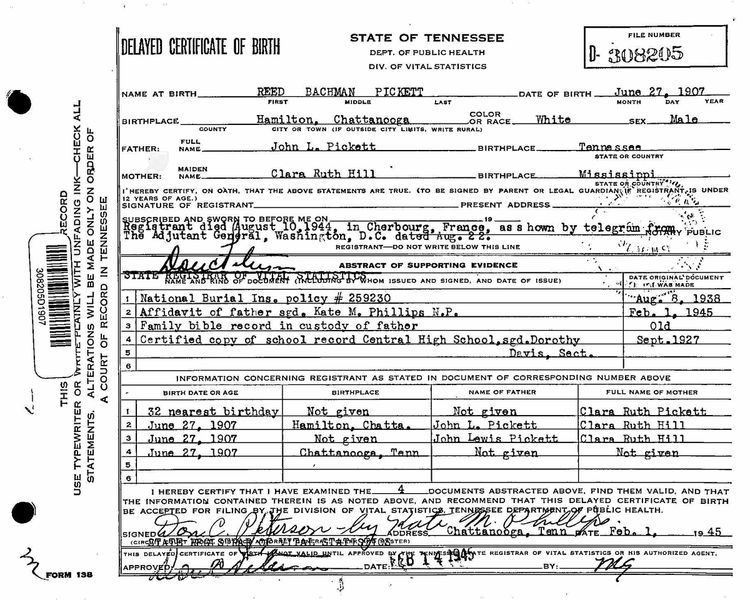 DELAYED CERTIFICATE OF BIRTH
STATE OF TENNESSEE
DEPT. OF PUBLIC HEALTH
DIV. OF VITAL STATISTICS
FILE NUMBER
D- 308205
NAME AT BIRTH REED BACHMAN PICKETT DATE OF BIRTH June 27, 1907
FIRST MIDDLE LAST MONTH DAY YEAR
BIRTHPLACE Hamilton, Chattanooga COLOR OR RACE White SEX Male
COUNTY CITY OR TOWN (IF OUTSIDE CITY LIMITS, WRITE RURAL)
FATHER: FULL NAME John L. Pickett BIRTHPLACE Tennessee
STATE OR COUNTRY
MOTHER: MAIDEN NAME Clara Ruth Hill BIRTHPLACE Mississippi
STATE OR COUNTRY
I HEREBY CERTIFY, ON OATH, THAT THE ABOVE STATEMENTS ARE TRUE. (TO BE SIGNED BY PARENT OR LEGAL GUARDIAN IF REGISTRANT IS UNDER
12 YEARS OF AGE.)
SIGNATURE OF REGISTRANT PRESENT ADDRESS
SUBSCRIBED AND SWORN TO BEFORE ME ON 19
Registrant died August 10,1944, in Cherbourg, France, as shown by telegram from
NOTARY PUBLIC
The Adjutant General, Washington, D.C. dated Aug. 22.
REGISTRANT—DO NOT WRITE BELOW THIS LINE
ABSTRACT OF SUPPORTING EVIDENCE
STATE REGISTRAR OF VITAL STATISTICS
NAME AND KIND OF DOCUMENT (INCLUDING BY WHOM ISSUED AND SIGNED, AND DATE OF ISSUE)
DATE ORIGINAL DOCUMENT WAS MADE
1 National Burial Ins. policy # 259230 Aug. 8, 1938
2 Affidavit of father sgd. Kate M. Phillips N.P. Feb. 1, 1945
3 Family bible record in custody of father Old
4 Certified copy of school record Central High School,sgd.Dorothy Sept.1927
5 Davis, Sect.
6
INFORMATION CONCERNING REGISTRANT AS STATED IN DOCUMENT OF CORRESPONDING NUMBER ABOVE
BIRTH DATE OR AGE BIRTHPLACE NAME OF FATHER FULL NAME OF MOTHER
1 32 nearest birthday Not given Not given Clara Ruth Pickett
2 June 27, 1907 Hamilton, Chatta. John L. Pickett Clara Ruth Hill
3 June 27, 1907 Not given John Lewis Pickett Clara Ruth Hill
4 June 27, 1907 Chattanooga, Tenn Not given Not given
5
6
I HEREBY CERTIFY THAT I HAVE EXAMINED THE 4 DOCUMENTS ABSTRACTED ABOVE, FIND THEM VALID, AND THAT
THE INFORMATION CONTAINED THEREIN IS AS NOTED ABOVE, AND RECOMMEND THAT THIS DELAYED CERTIFICATE OF BIRTH
BE ACCEPTED FOR FILING BY THE DIVISION OF VITAL STATISTICS, TENNESSEE DEPARTMENT OF PUBLIC HEALTH.
SIGNED Don C. Peterson - by Kate M. Phillips ADDRESS Chattanooga, Tenn DATE Feb. 1, 1945
STATE REGISTRAR OF VITAL STATISTICS
THIS DELAYED CERTIFICATE OF BIRTH NOT VALID UNTIL APPROVED BY THE TENNESSEE STATE REGISTRAR OF VITAL STATISTICS OR HIS AUTHORIZED AGENT.
APPROVED DATE: FEB 14 1945 BY:
FORM 138
THIS RECORD
USE TYPEWRITER OR WRITE PLAINLY WITH UNFADING INK—CHECK ALL
STATEMENTS. ALTERATIONS WILL BE MADE ONLY ON ORDER OF
A COURT OF RECORD IN TENNESSEE
308205D1907